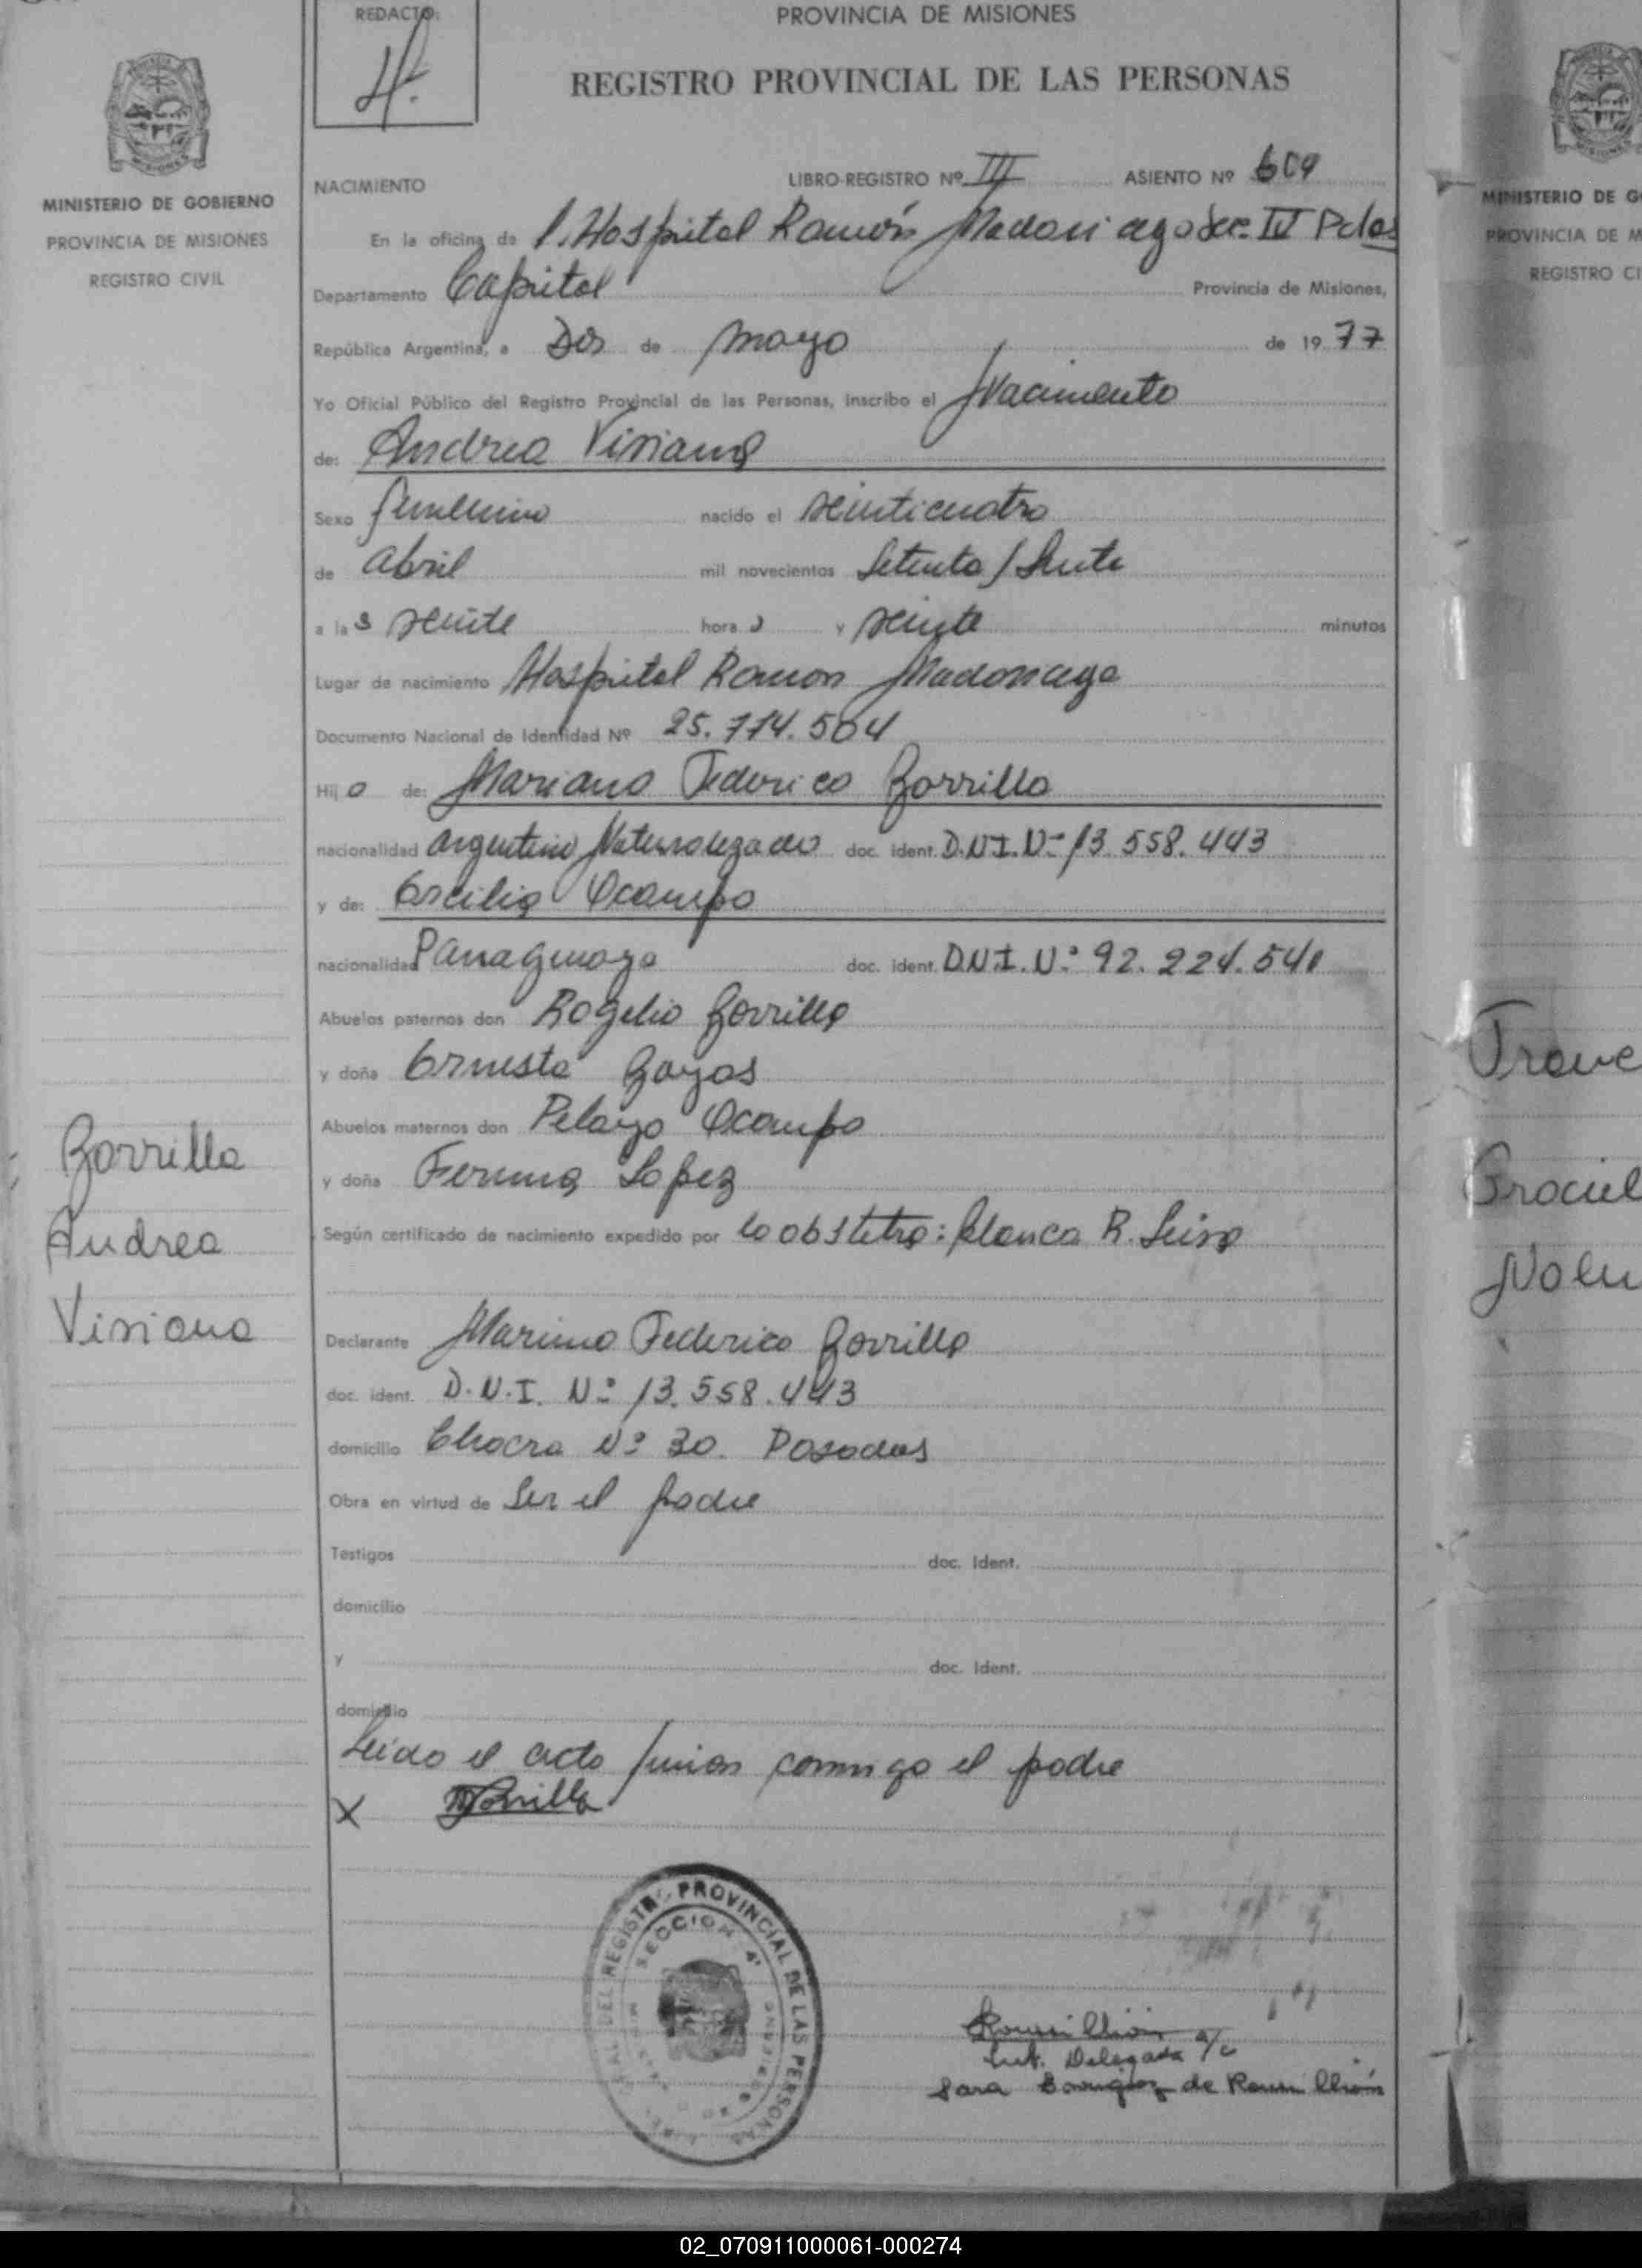 REDACTO:
PROVINCIA DE MISIONES
REGISTRO PROVINCIAL DE LAS PERSONAS
MINISTERIO DE GOBIERNO
PROVINCIA DE MISIONES
REGISTRO CIVIL
NACIMIENTO
LIBRO-REGISTRO Nº III ASIENTO Nº 609
En la oficina de Hospital Ramón Madariaga Sec. IV Pdas
Departamento Capital Provincia de Misiones,
República Argentina, a Dos de mayo de 1977
Yo Oficial Público del Registro Provincial de las Personas, inscribo el Nacimiento
de: Andrea Viviana
Sexo femenino nacido el veinticuatro
de abril mil novecientos Setenta / Siete
a las veinte horas y veinte minutos
Lugar de nacimiento Hospital Ramon Madariaga
Documento Nacional de Identidad Nº 25.774.504
Hijo de: Mariano Federico Zorrilla
nacionalidad argentino Naturalizado doc. ident. D.N.I. Nº 13.558.443
y de: Ercilia Ocampo
nacionalidad Paraguaya doc. ident. D.N.I. Nº 92.224.541
Abuelos paternos don Rogelio Zorrilla
y doña Ernesta Zayas
Abuelos maternos don Pelayo Ocampo
y doña Fermina Lopez
Según certificado de nacimiento expedido por la obstetra: Blanca R. Leiva
Declarante Mariano Federico Zorrilla
doc. ident. D.N.I. Nº 13.558.443
domicilio Chacra Nº 30. Posadas
Obra en virtud de Ser el padre
Testigos doc. Ident.
domicilio
y doc. Ident.
domicilio
Leido el acta firman conmigo el padre
X Zorrilla
Zorrilla
Andrea
Viviana
REGISTRO PROVINCIAL DE LAS PERSONAS
SECCION 4ª
Roumillión a/c
Delegada
Sara de Roumillión
MINISTERIO DE G
PROVINCIA DE M
REGISTRO CI
Graciel
02_070911000061-000274